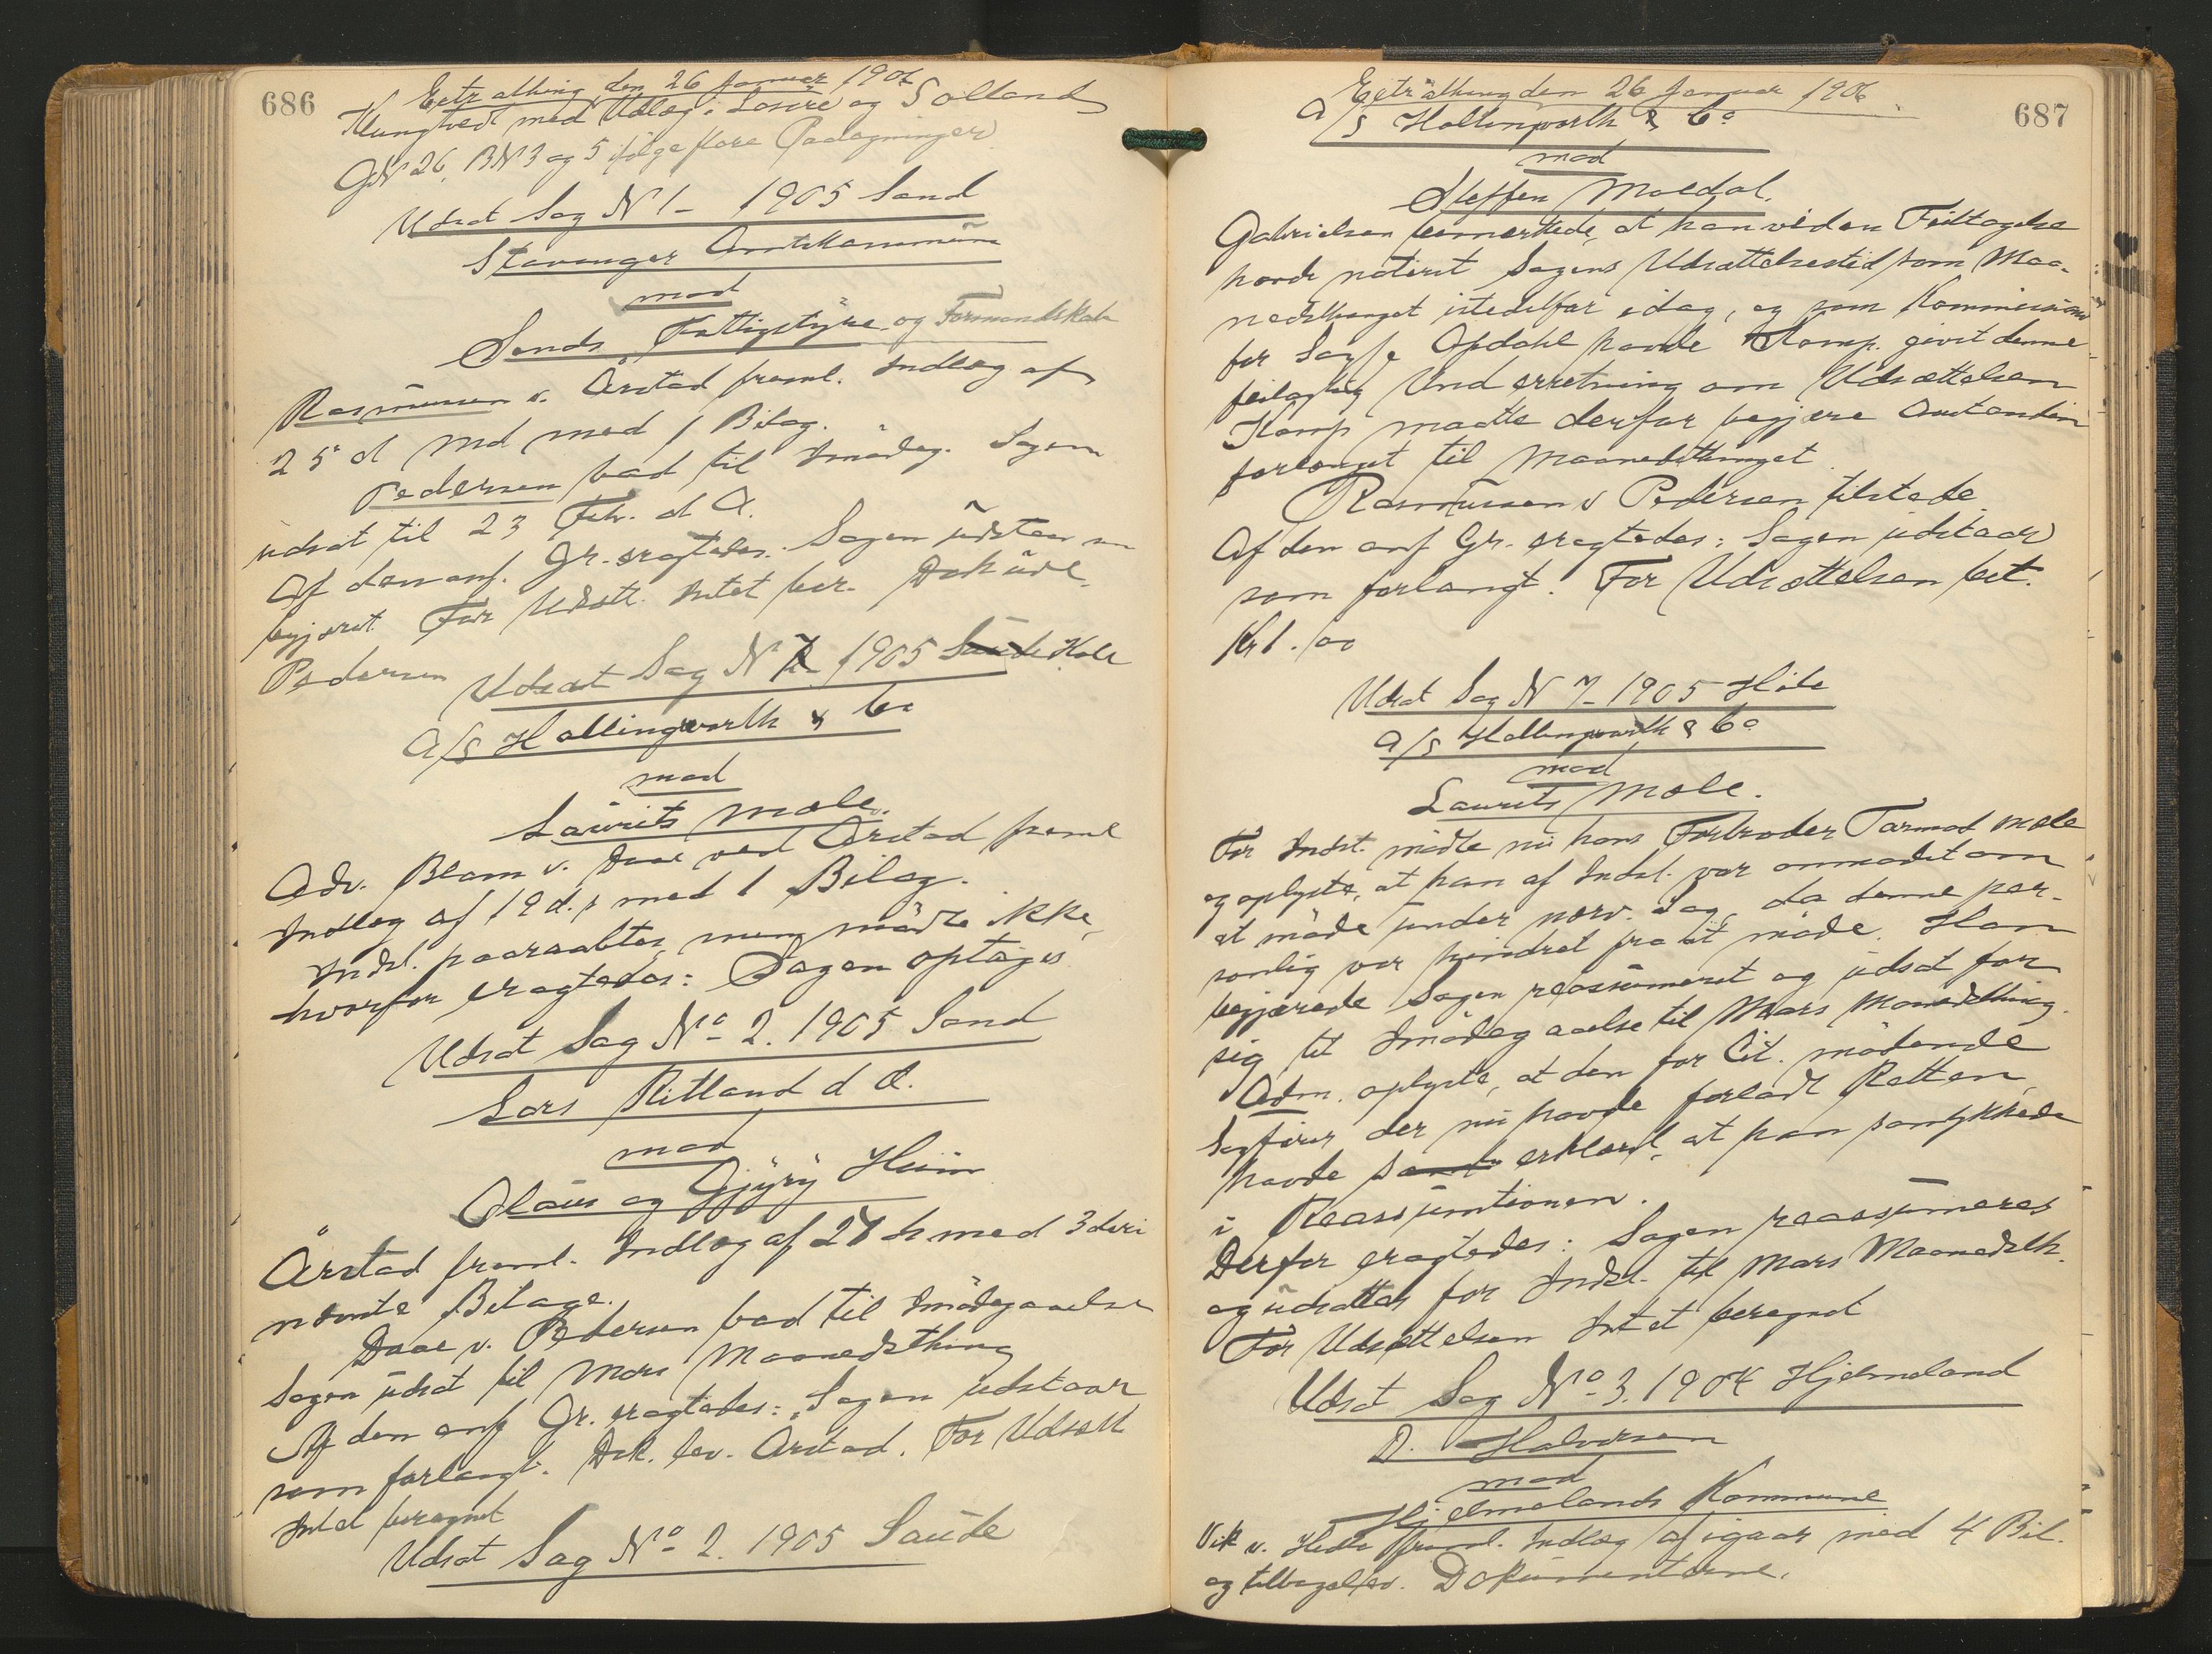 686
Extrathing den 26 Januar 1906
Klungtvedt med Udlæg i og Solland
GN 26, BN 3 og 5 ifølge flere Paategninger
Udsat Sag N 1 - 1905 Sand
Stavanger Amtskommune
mod
Sands Fattigstyre og Formandskab
Rasmussen v. Årstad freml. Indlæg af
25 d Md med 1 Bilag.
Pedersen bad til Imødeg. Sagen
udsat til 23 Feb. d A.
Af den anf. Gr. eragtedes: Sagen udstaar som
begjæret. For Udsætt. Intet ber.
Pedersen
Udsat Sag N 7 1905 Saude Hole
A/S Hollingworth & Co
mod
Laurits Mæle.
Adv. Blom v. Daae ved Årstad freml
Indlæg af 19 d.s med 1 Bilag.
Indst. paaraabtes, men mødte ikke,
hvorfor eragtedes: Sagen optages
Udsat Sag No 2. 1905 Sand
Lars Ritland d. Æ.
mod
Olaus og Gjyrij Heim
Årstad freml. Indlæg af 27 ds med 3 deri
nævnte Bilage.
Daae v. Pedersen bad til Imødegaaelse
Sagen udsat til Mars Maanedsthing
Af den anf Gr. eragtedes: Sagen udstaar
som forlangt. Dok. lev. Årstad. For Udsætt
Intet beregnet
Udsat Sag No 2. 1905 Saude
687
Extrathing den 26 Januar 1906
A/S Hollingworth & Co
mod
Steffen Moldal.
Gabrielsen bemerkede, at han ved en Feiltagelse
havde noteret Sagens Udsættelsestid som Maa-
nedsthinget istedetfor idag, og som Kommissionær
for Sagf. Opdahl havde Komp. givet denne
feilagtig Underretning om Udsættelsen
Komp maatte derfor begjære Anstanden
forlænget til Maanedsthinget
Rasmussen v Pedersen tilstede
Af den anf Gr. eragtedes: Sagen udstaar
som forlangt. For Udsættelsen bet.
Kr 1.00
Udsat Sag N 7 - 1905 Hole
A/S Hollingworth & Co
mod
Laurits Mæle.
For Indst. mødte nu hans Farbroder Tormod Mæle
og oplyste, at han af Indst. var anmodet om
at møde under nærv. Sag, da denne per-
sonlig var hindret fra at møde. Han
begjærede Sagen reassumeret og udsat for
sig til Imødegaaelse til Mars Maanedsthing.
Adm. oplyste, at den for Cit. mødende
Sagfører der nu havde forladt Retten,
havde erklæret, at han samtykkede
i Reassumtionen.
Derfor eragtedes: Sagen reassumeres
og udsættes for Indst. til Mars Maanedsth.
For Udsættelsen Intet beregnet
Udsat Sag No 3. 1904 Hjelmeland
D. Halvorsen
mod
Hjelmelands Kommune
Vik v. freml. Indlæg af igaar med 4 Bil.
og tilbagelev. Dokumenterne.